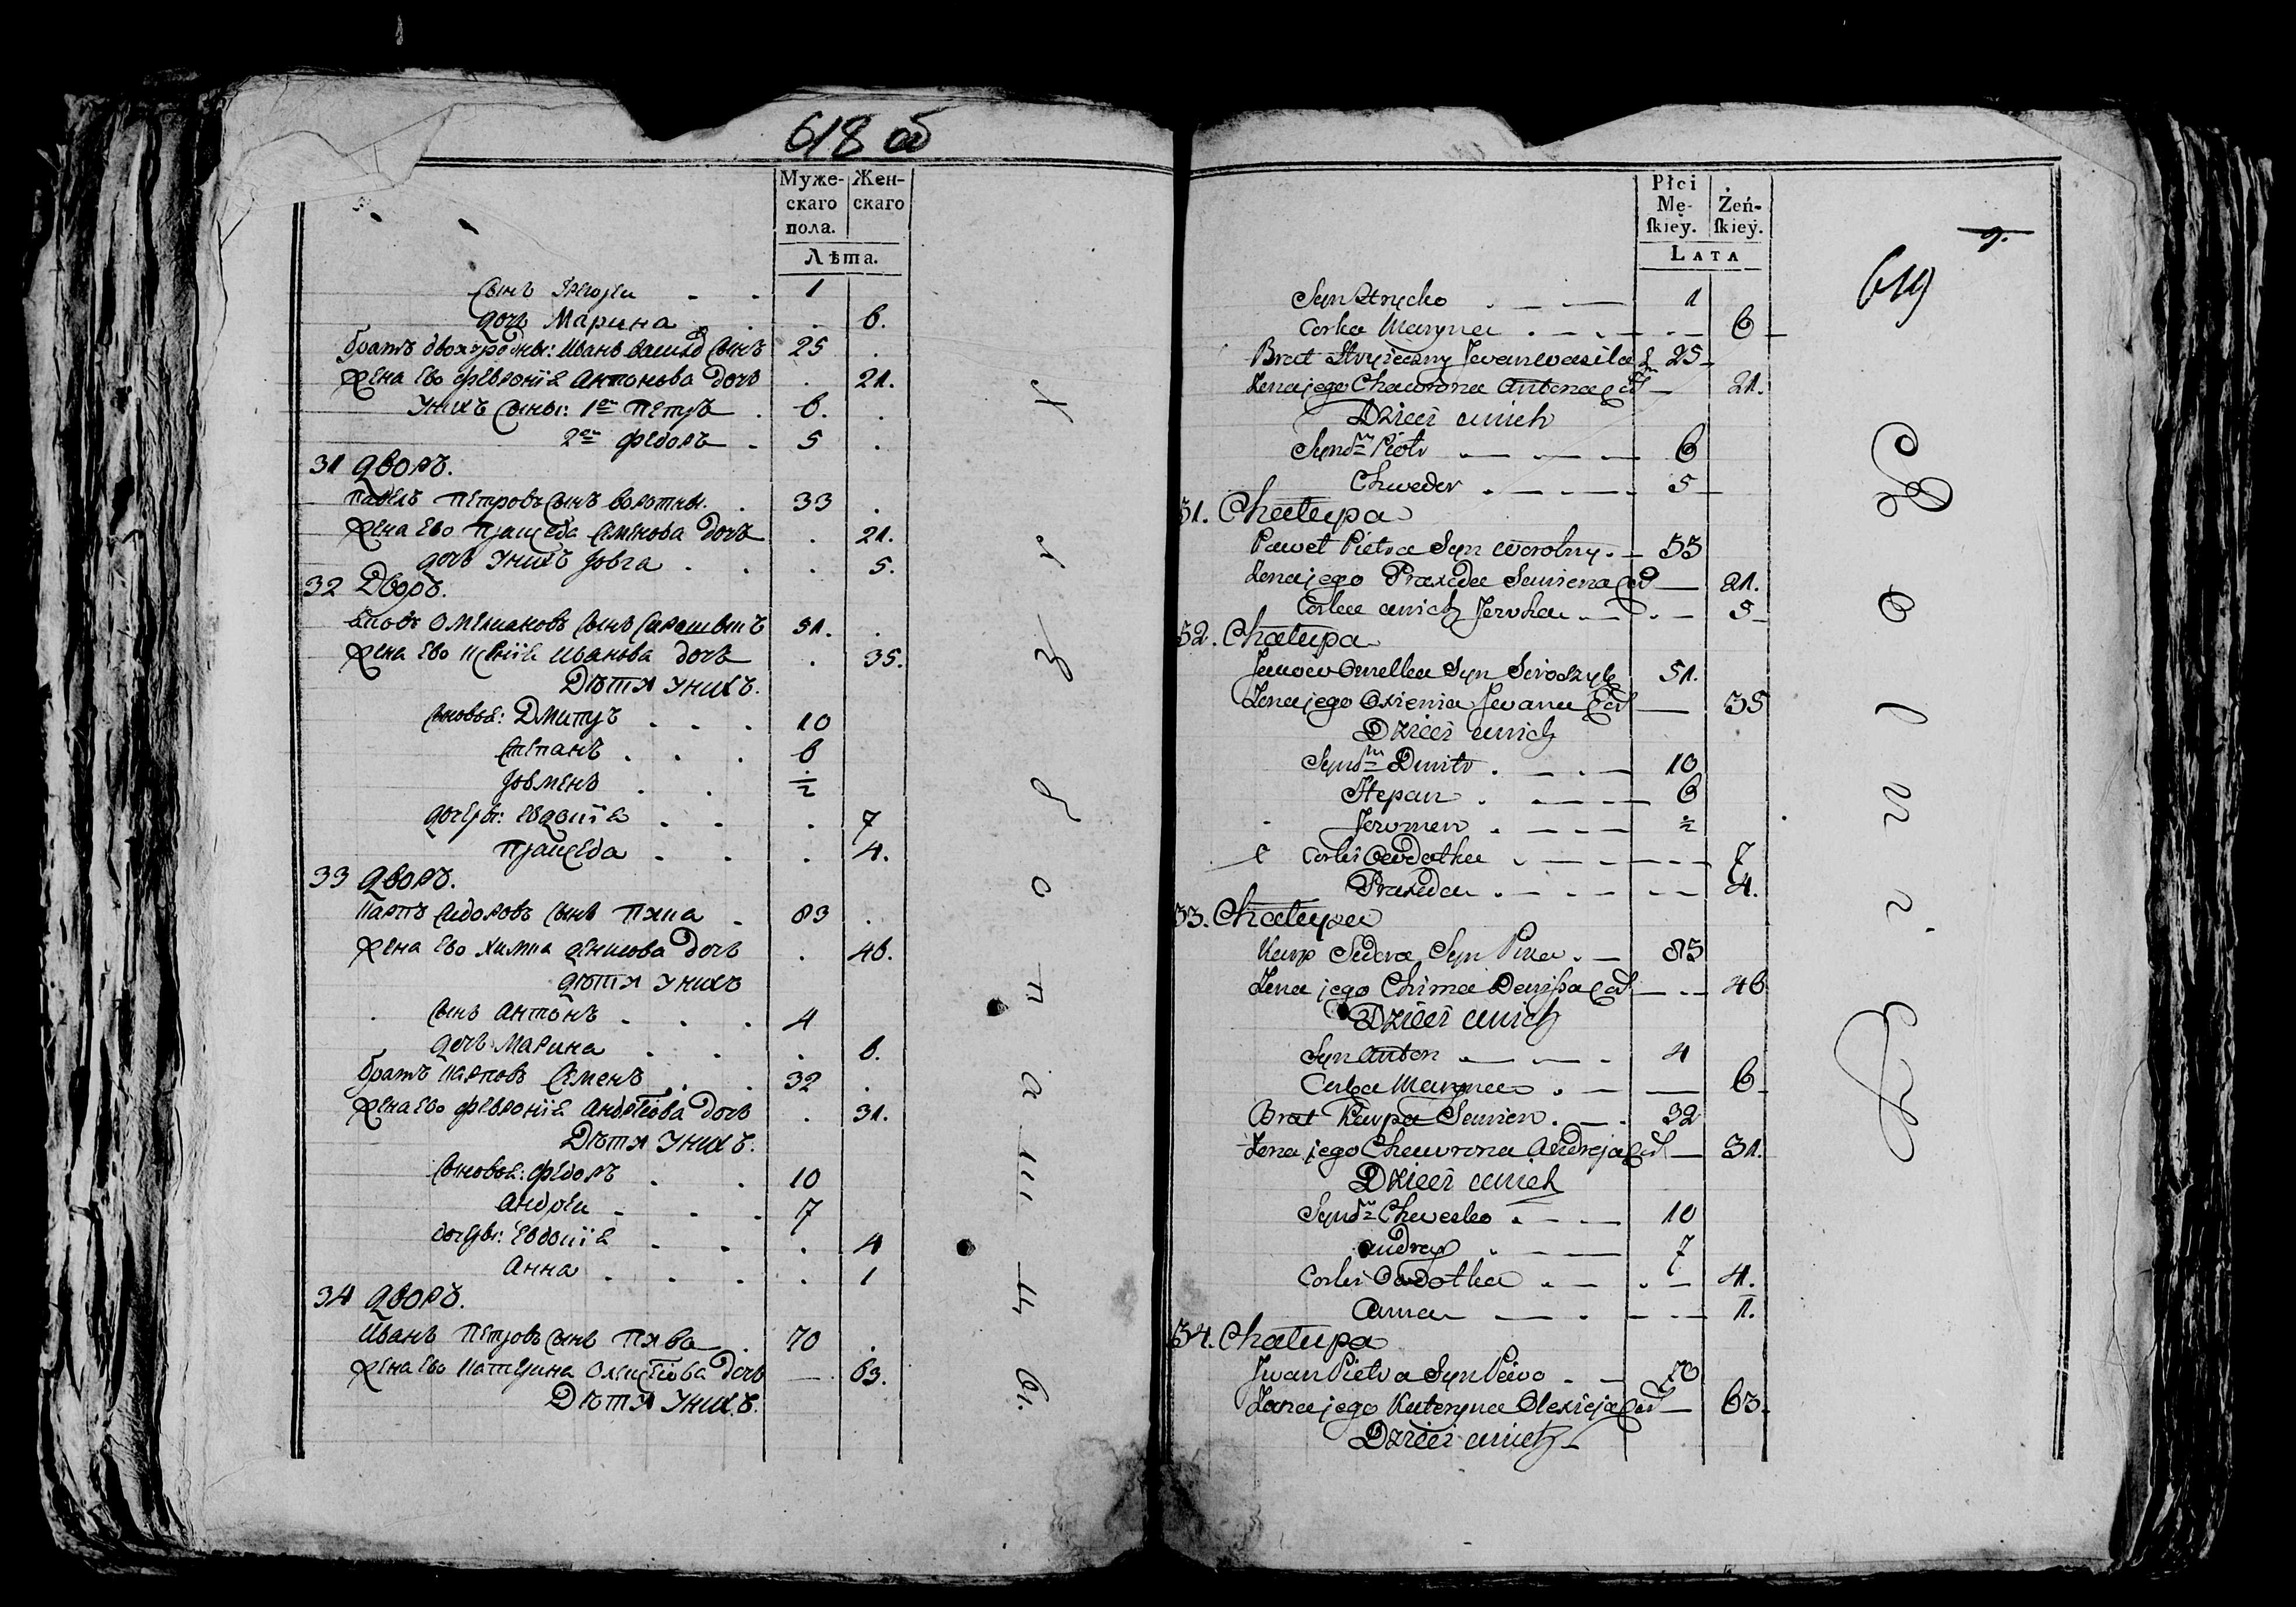 618 об
Муже-скаго пола. Жен-скаго
Лѣта.
сынъ Григореи . . 1
дочь Марина . . . 6.
братъ двоюродны: Иванъ Василѣ сынъ 25 .
жена Ево Феврониѣ Антонова дочь . 21.
Унихъ сыны: 1й Петръ . 6. .
2й Федоръ . 5 .
31 Дворъ.
Павелъ Петровъ сынъ Воротны. . 33 .
жена Ево Праѯеда Семенова дочь . 21.
дочь Унихъ Ӏовга . . . 5.
32 Дворъ.
Омелиановъ сынъ 51. .
жена Ево Иванова дочь . 35.
Дѣтя Унихъ.
сыновья: Дмитръ . . . 10
Степанъ . . . 6
Ӏовменъ . . ½
дочеры: Евдокиѣ . . . 7
Праѯеда . . . 4.
33 Дворъ.
Карпъ Сидоровъ сынъ Пяка . 83 .
жена Ево Химка Денисова дочь . 46.
Дѣтя Унихъ
сынъ Антонъ . . . 4
дочь Марина . . . 6.
братъ Карповъ Семенъ . . 32 .
жена Ево Феврониѣ Андреѣова дочь . 31.
Дѣтя Унихъ.
сыновья: Федоръ . . 10
Андреи . . . 7
дочеры: Евдокиѣ . . . 4
Анна . . . . 1
34 Дворъ.
Иванъ Петровъ сынъ Пява . 70 .
жена Ево Катерина Олеѯѣева дочь — 63.
Дѣтя Унихъ.
Płci Mę-ſkiey. Żeń-ſkiey.
LATA
9.
619
Syn Hrycko . — . — 1
Corka Maryna . — . — . — 6
Brat Stryieczny Jwan Wasila S 25
Żona jego Chawrona Antona Cor — 21.
Dzieci u nich
Synow Piotr — — — 6
Chweder . — . — . 5
31. Chałupa
Paweł Pietra Syn Worotny . — 33
Żona jego Praxeda Semena Cor — 21.
Corka u nich Jewka . — . — 5
32. Chałupa
Omelka Syn 51.
Żona jego Oxienia Jwana Cor — 35
Dzieci u nich
Synow Dmitr . — . — 10
Stepan . — . — 6
Jewmen . — — — ½
Corki Owdotka . — — — — 7
Praxeda . — . — — — 4.
33. Chałupa
Karp Sedora Syn Pika . — 83
Żona jego Chimka Denisa Cor — . — 46
Dzieci u nich
Syn Anton . — — . 4
Corka Maryna . — — 6
Brat Karpa Semen . — . 32
Żona jego Chawrona Andreja Cor — 31.
Dzieci u nich
Synow Chwedko . — — 10
Andrey . — — 7
Corki Owdotka . — . — 4.
Anna — — . — — . 1.
34. Chałupa
Jwan Pietra Syn Piewo . — 70
Żona jego Kateryna Olexieja Cor — 63.
Dzieci u nich